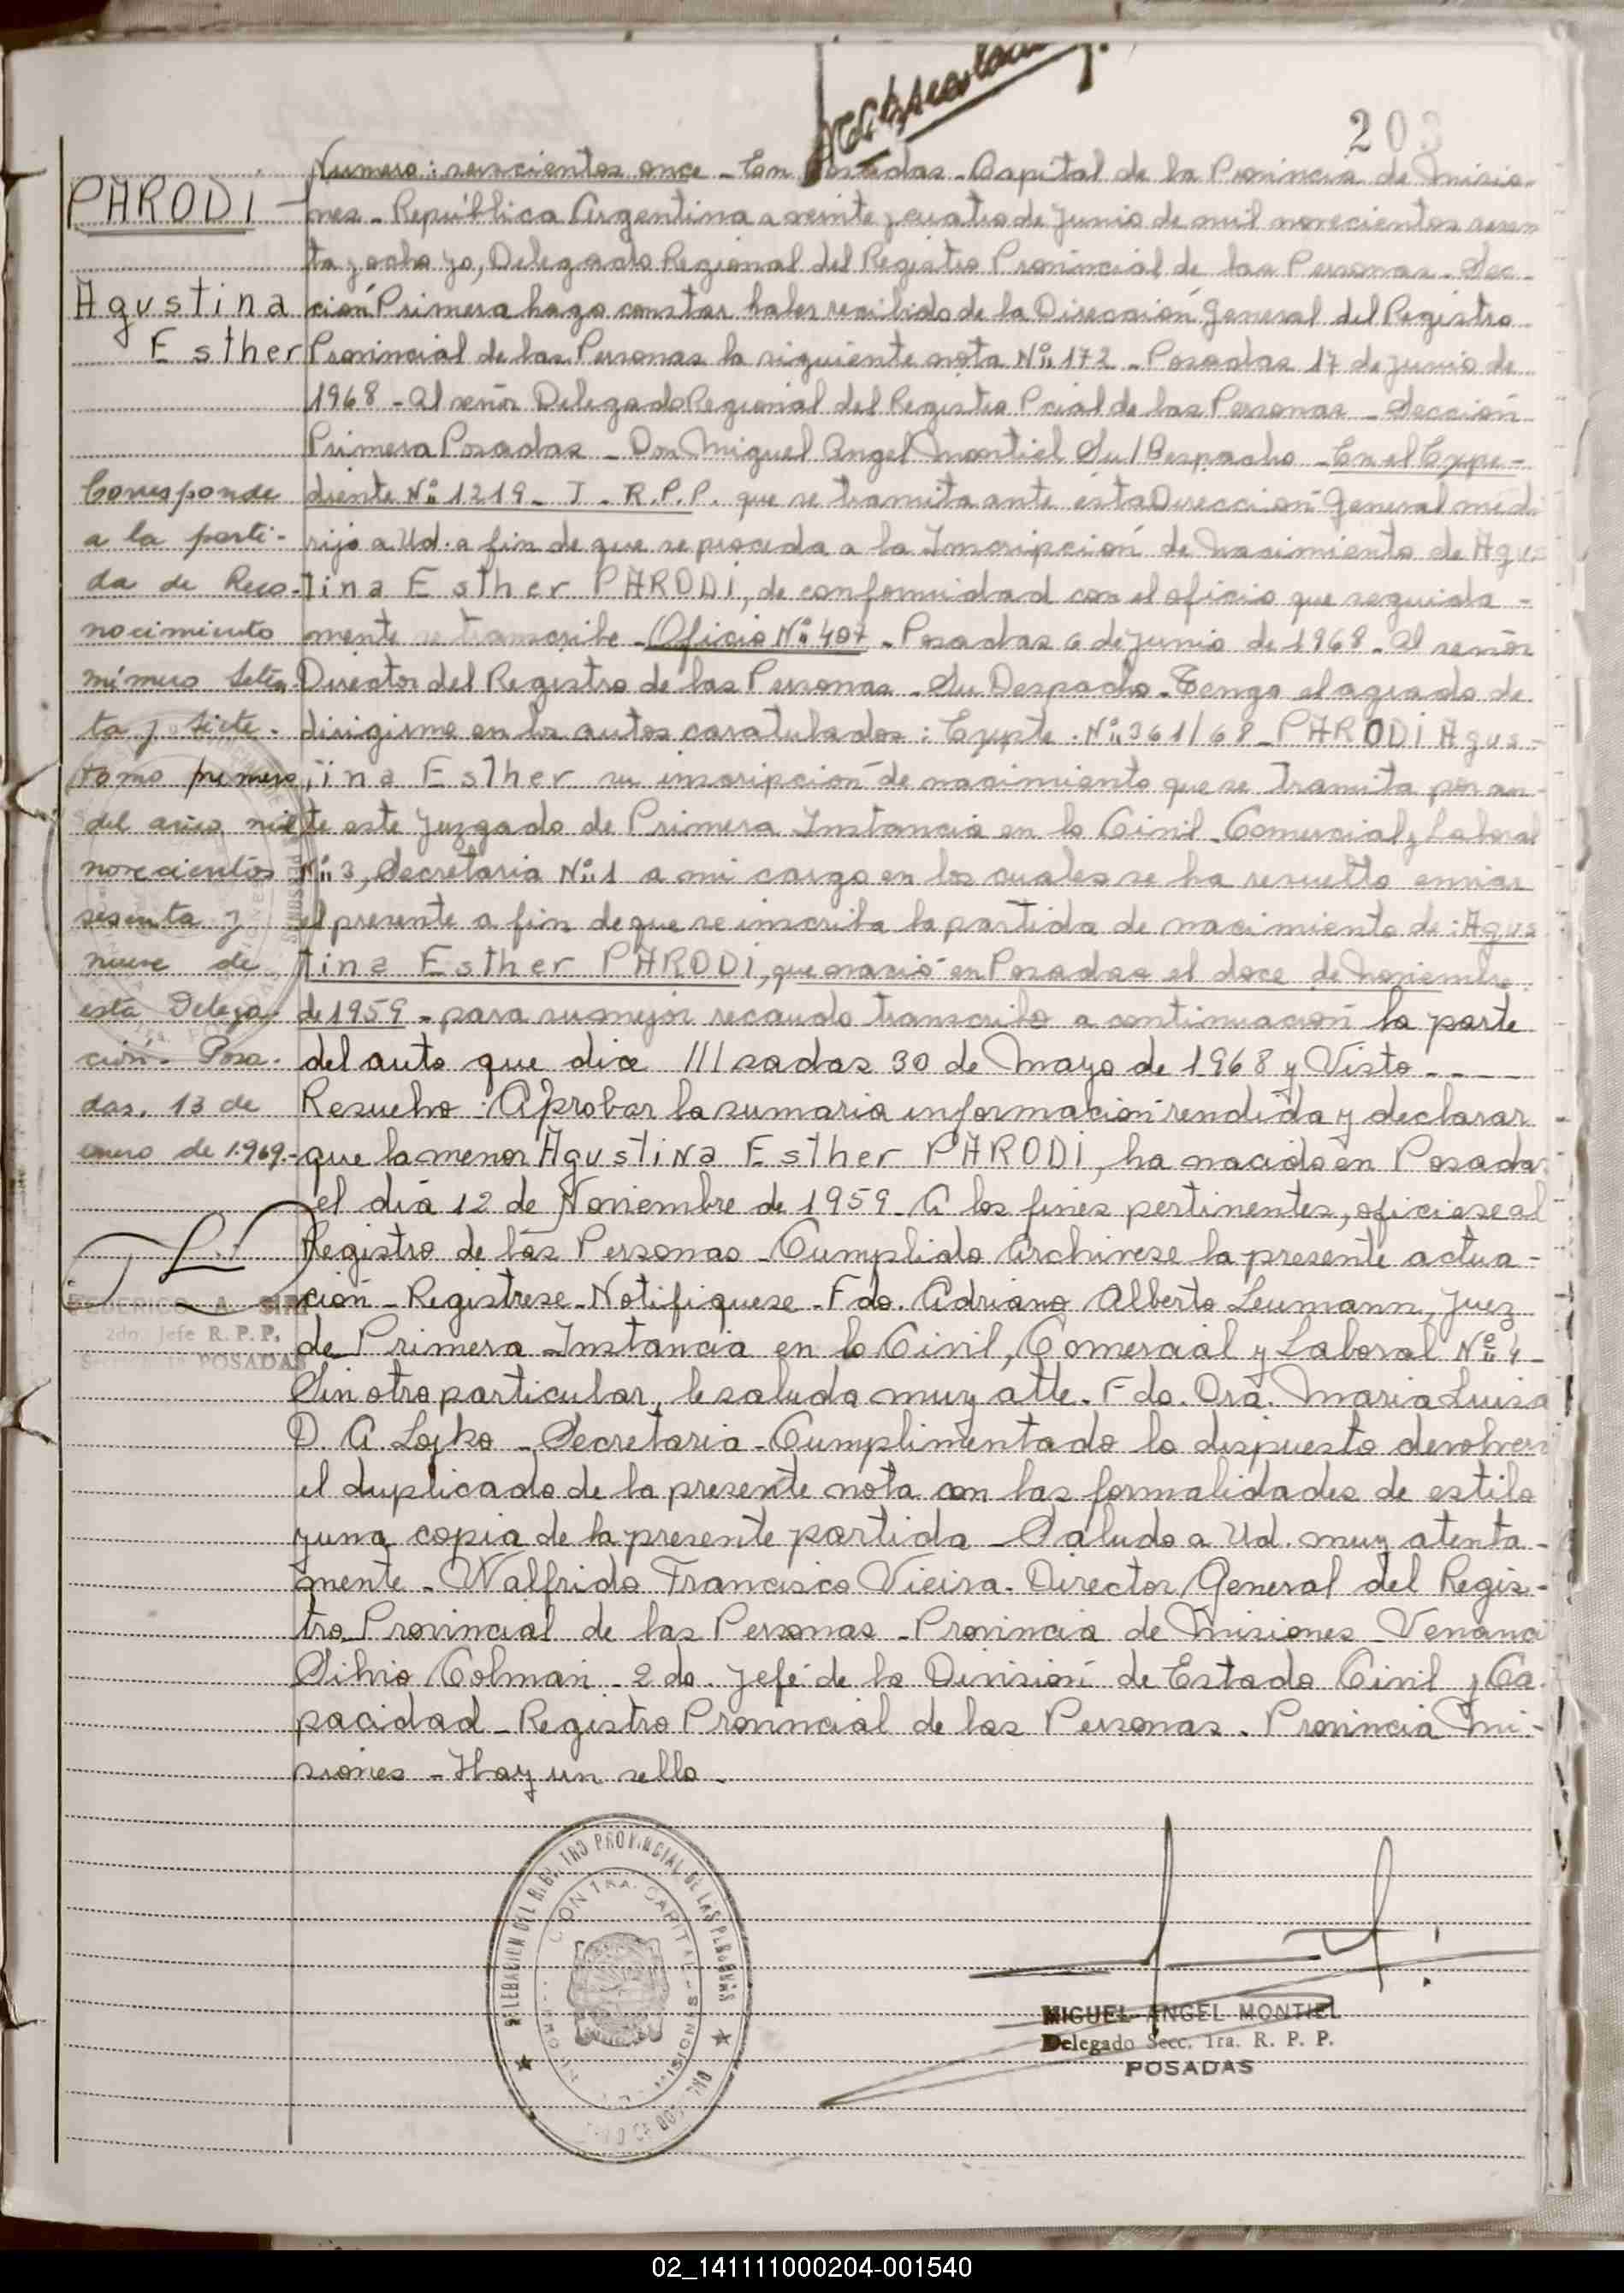 203
PARODI
Agustina
Esther
Corresponde
a la parti-
da de Reco-
nocimiento
número seten
ta y siete.
tomo primero
del año mil
novecientos
sesenta y
nueve de
esta Delega-
ción. Posa-
das, 13 de
enero de 1.969.-
FEDERICO A.
2do. Jefe R. P. P.
POSADAS
Numero: seiscientos once - En Posadas - Capital de la Provincia de Misio-
nes - República Argentina a veinte y cuatro de Junio de mil novecientos sesen
ta y ocho yo, Delegado Regional del Registro Provincial de las Personas - Sec-
ción Primera hago constar haber recibido de la Dirección General del Registro
Provincial de las Personas la siguiente nota Nº 172 - Posadas 17 de junio de
1968 - Al señor Delegado Regional del Registro Pcial de las Personas - Sección
Primera Posadas - Don Miguel Angel Montiel Su/Despacho - En el Expe-
diente Nº 1219 - J - R.P.P. que se tramita ante esta Dirección General me di
rijo a Ud. a fin de que se proceda a la Inscripción de nacimiento de Agus
tina Esther PARODI, de conformidad con el oficio que seguida-
mente se transcribe - Oficio Nº 407 - Posadas 6 de junio de 1968 - Al señor
Director del Registro de las Personas - Su Despacho - Tengo el agrado de
dirigirme en los autos caratulados: Expte. Nº 361/68 - PARODI Agus-
tina Esther su inscripción de nacimiento que se tramita por an-
te este Juzgado de Primera Instancia en lo Civil - Comercial y Laboral
Nº 3, Secretaria Nº 1 a mi cargo en los cuales se ha resuelto enviar
el presente a fin de que se inscriba la partida de nacimiento de: Agus
tina Esther PARODI, que nació en Posadas el doce de noviembre
de 1959 - para su mejor recaudo transcribo a continuación la parte
del auto que dice ///sadas 30 de Mayo de 1968 y Visto ----
Resuelvo: Aprobar la sumaria información rendida y declarar
que la menor Agustina Esther PARODI, ha nacido en Posadas
el día 12 de Noviembre de 1959 - A los fines pertinentes, oficiese al
Registro de las Personas - Cumplido Archivese la presente actua-
ción - Registrese - Notifiquese - Fdo. Adriano Alberto Leumann, Juez
de Primera Instancia en lo Civil, Comercial y Laboral Nº 4 -
Sin otro particular, le saluda muy atte. Fdo. Dra. Maria Luisa
D. A Lojko - Secretaria - Cumplimentado lo dispuesto devolver
el duplicado de la presente nota con las formalidades de estilo
y una copia de la presente partida - Saludo a Ud. muy atenta-
mente - Walfrido Francisco Vieira. Director General del Regis-
tro Provincial de las Personas - Provincia de Misiones -
Silvio Colman - 2do. Jefe de la División de Estado Civil y Ca-
pacidad - Registro Provincial de las Personas. Provincia Mi-
siones - Hay un sello -
MIGUEL ANGEL MONTIEL
Delegado Secc. 1ra. R. P. P.
POSADAS
02_141111000204-001540